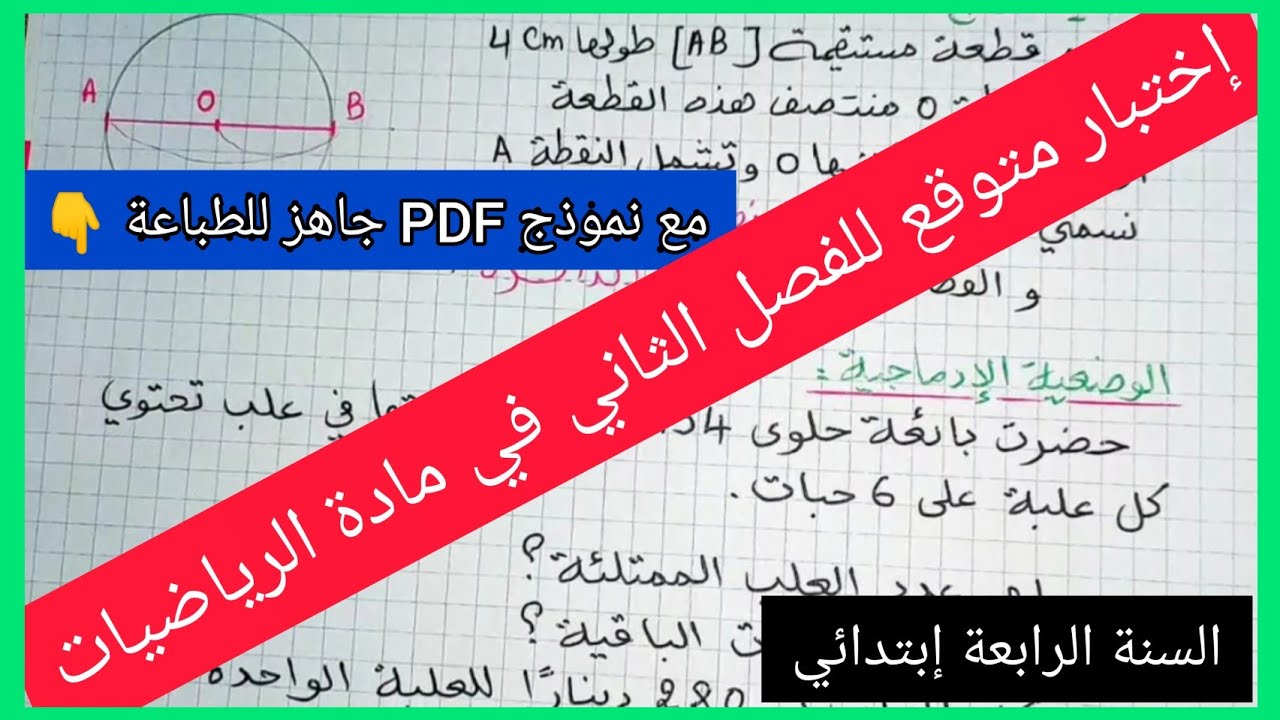 قطعة مستقيمة [AB] طولها 4 Cm
O منتصف هذه القطعة
O وتشمل النقطة A
نسمي
و
A O B
مع نموذج PDF جاهز للطباعة 👇
إختبار متوقع للفصل الثاني في مادة الرياضيات
الوضعية الإدماجية :
حضرت بائعة حلوى في علب تحتوي
كل علبة على 6 حبات .
عدد العلب الممتلئة ؟
الباقية ؟
280 دينارًا للعلبة الواحدة
السنة الرابعة إبتدائي